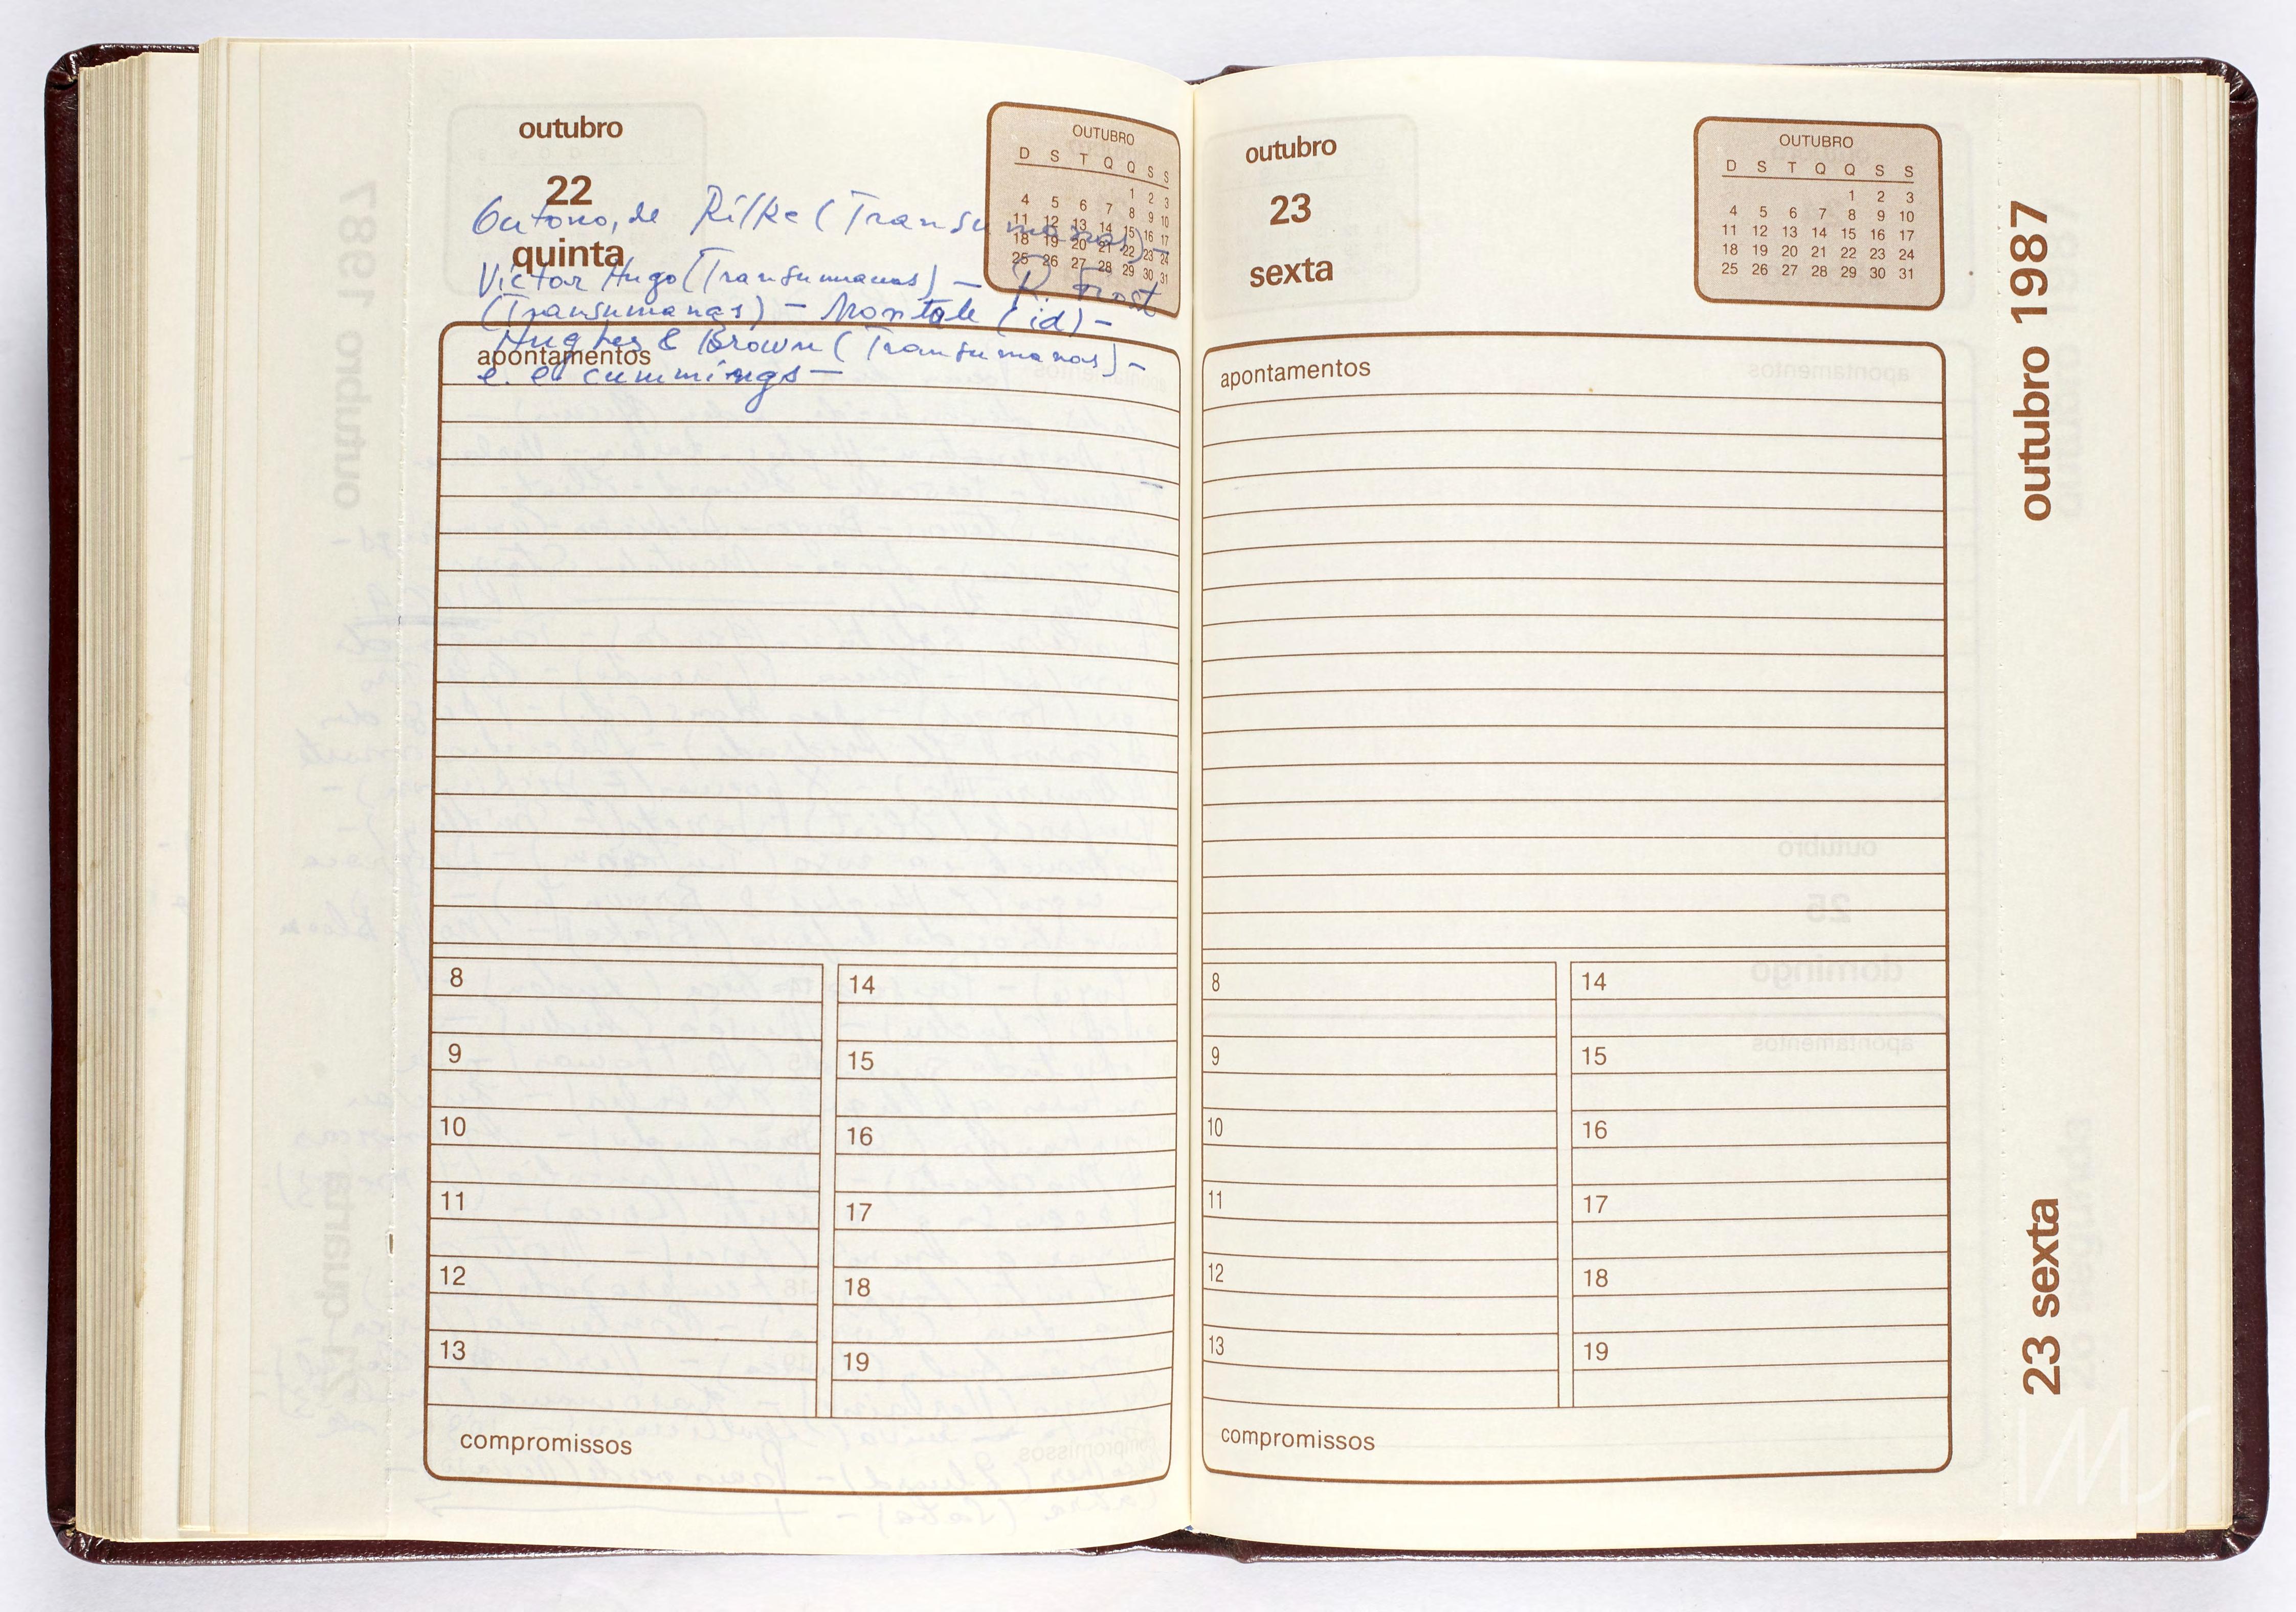 outubro
22
quinta
OUTUBRO
D S T Q Q S S
1 2 3
4 5 6 7 8 9 10
11 12 13 14 15 16 17
18 19 20 21 22 23 24
25 26 27 28 29 30 31
Outono, de Rilke (Transumanas) –
Victor Hugo (Transumanas) – R. Frost
(Transumanas) – Montale (id) –
Hughes & Brown (Transumanas) –
e. e. cummings –
apontamentos
8 14
9 15
10 16
11 17
12 18
13 19
compromissos
outubro
23
sexta
OUTUBRO
D S T Q Q S S
1 2 3
4 5 6 7 8 9 10
11 12 13 14 15 16 17
18 19 20 21 22 23 24
25 26 27 28 29 30 31
apontamentos
8 14
9 15
10 16
11 17
12 18
13 19
compromissos
outubro 1987
23 sexta
IMS